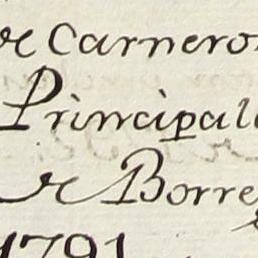 de Carnero
Principal
de Borre
1791